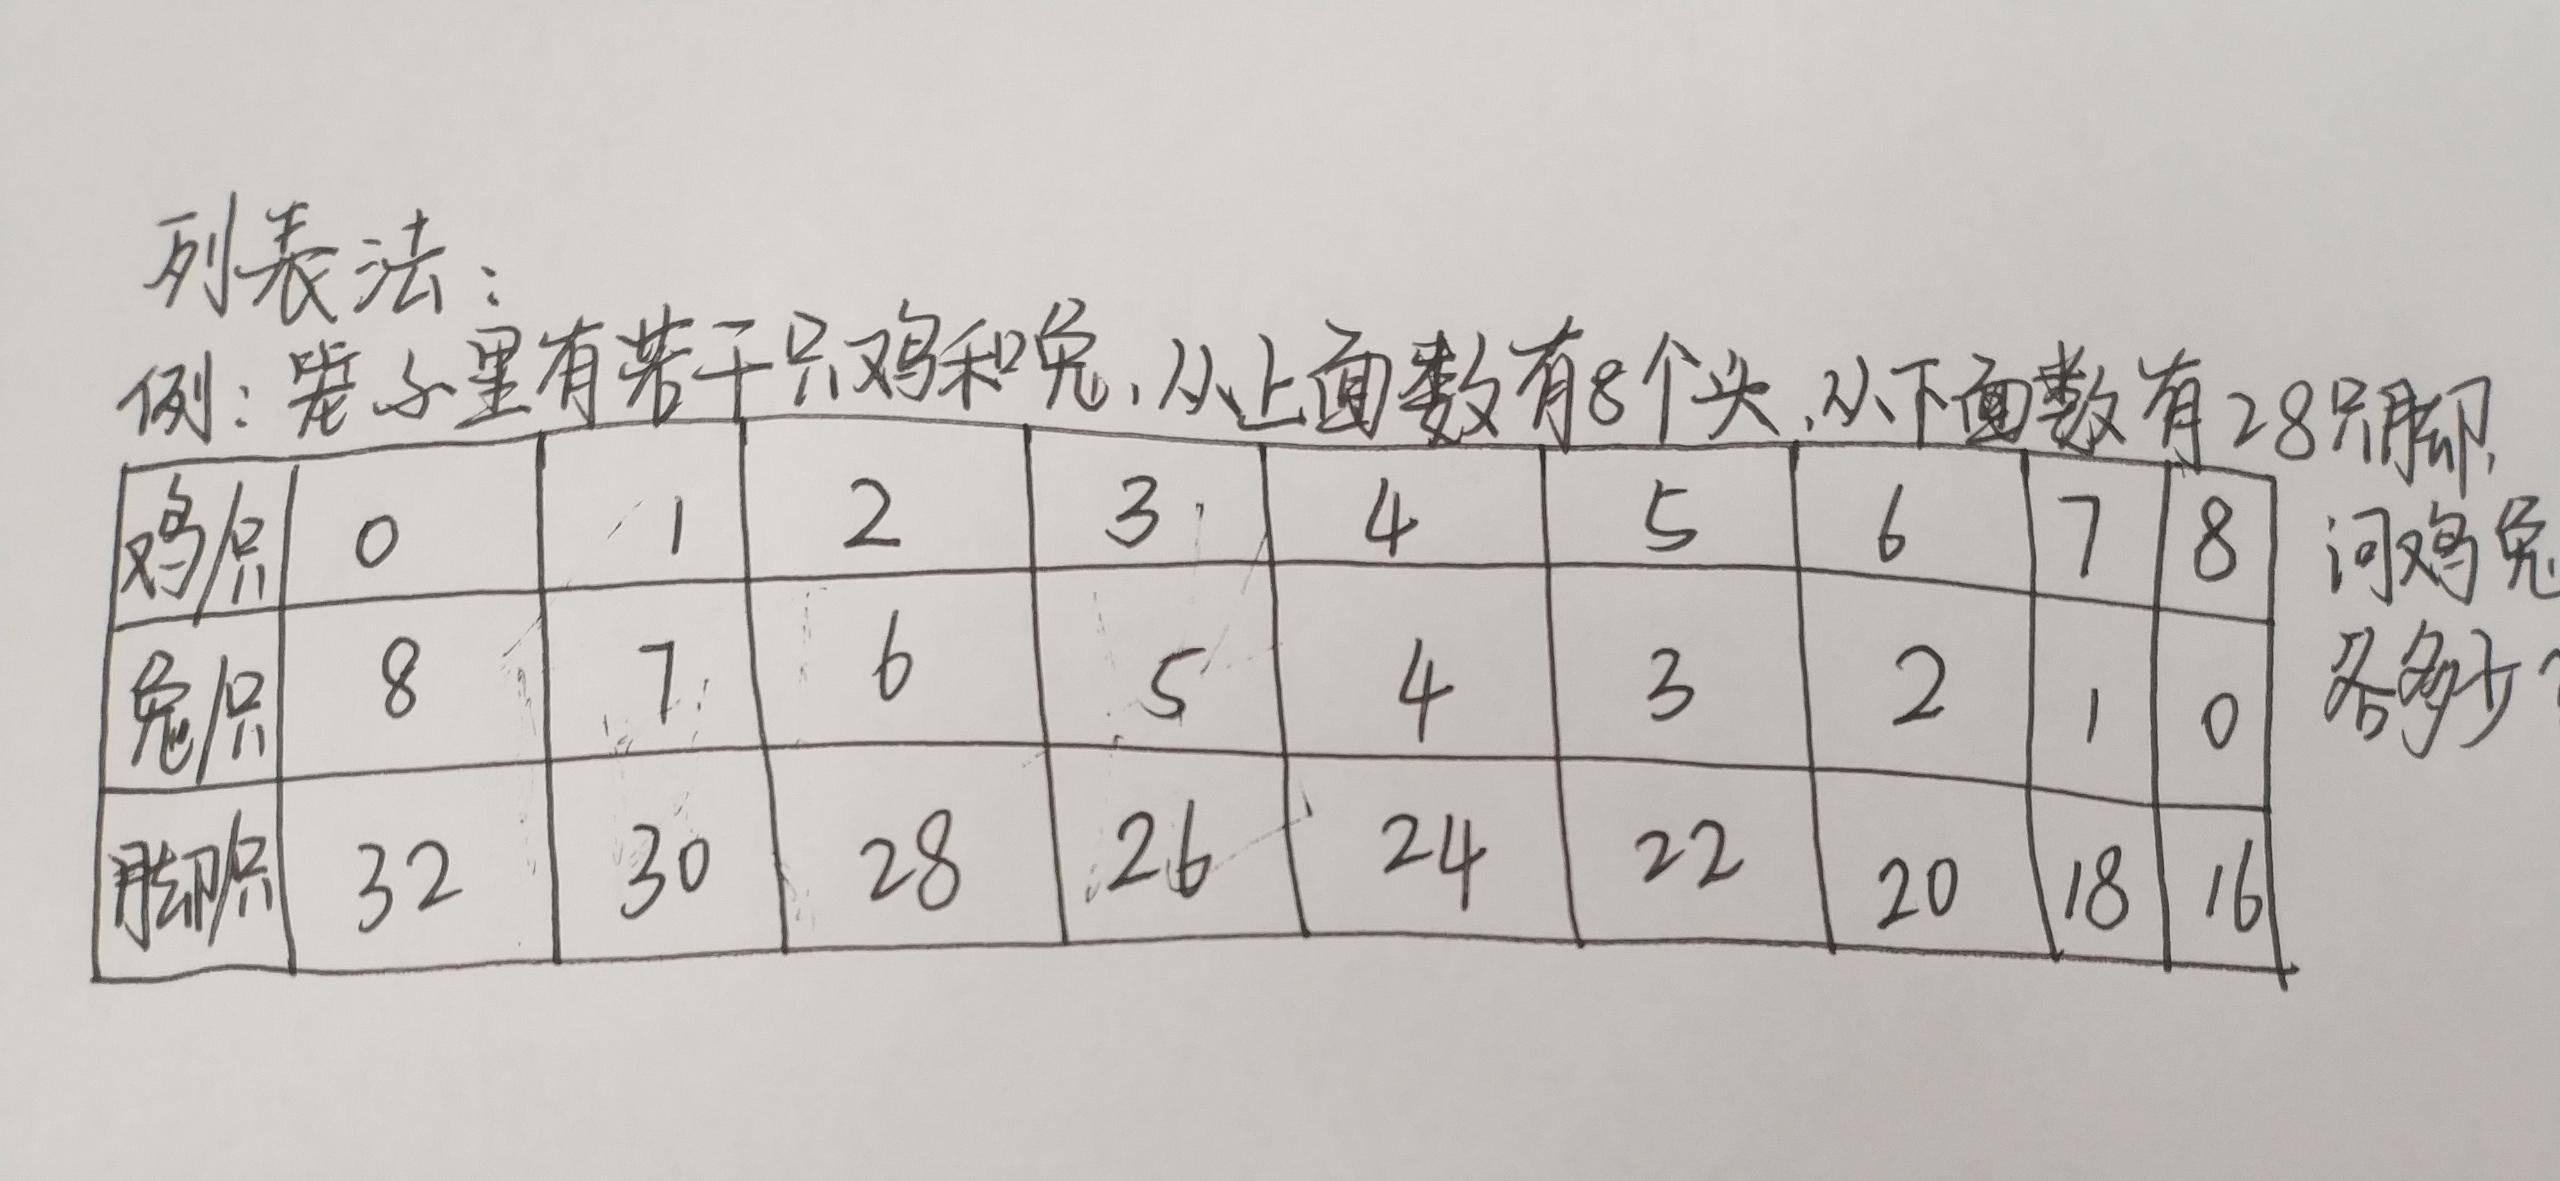 列表法：
例：笼子里有若干只鸡和兔，从上面数有8个头，从下面数有28只脚，
问鸡兔
各多少？
鸡/只 0 1 2 3 4 5 6 7 8
兔/只 8 7 6 5 4 3 2 1 0
脚/只 32 30 28 26 24 22 20 18 16